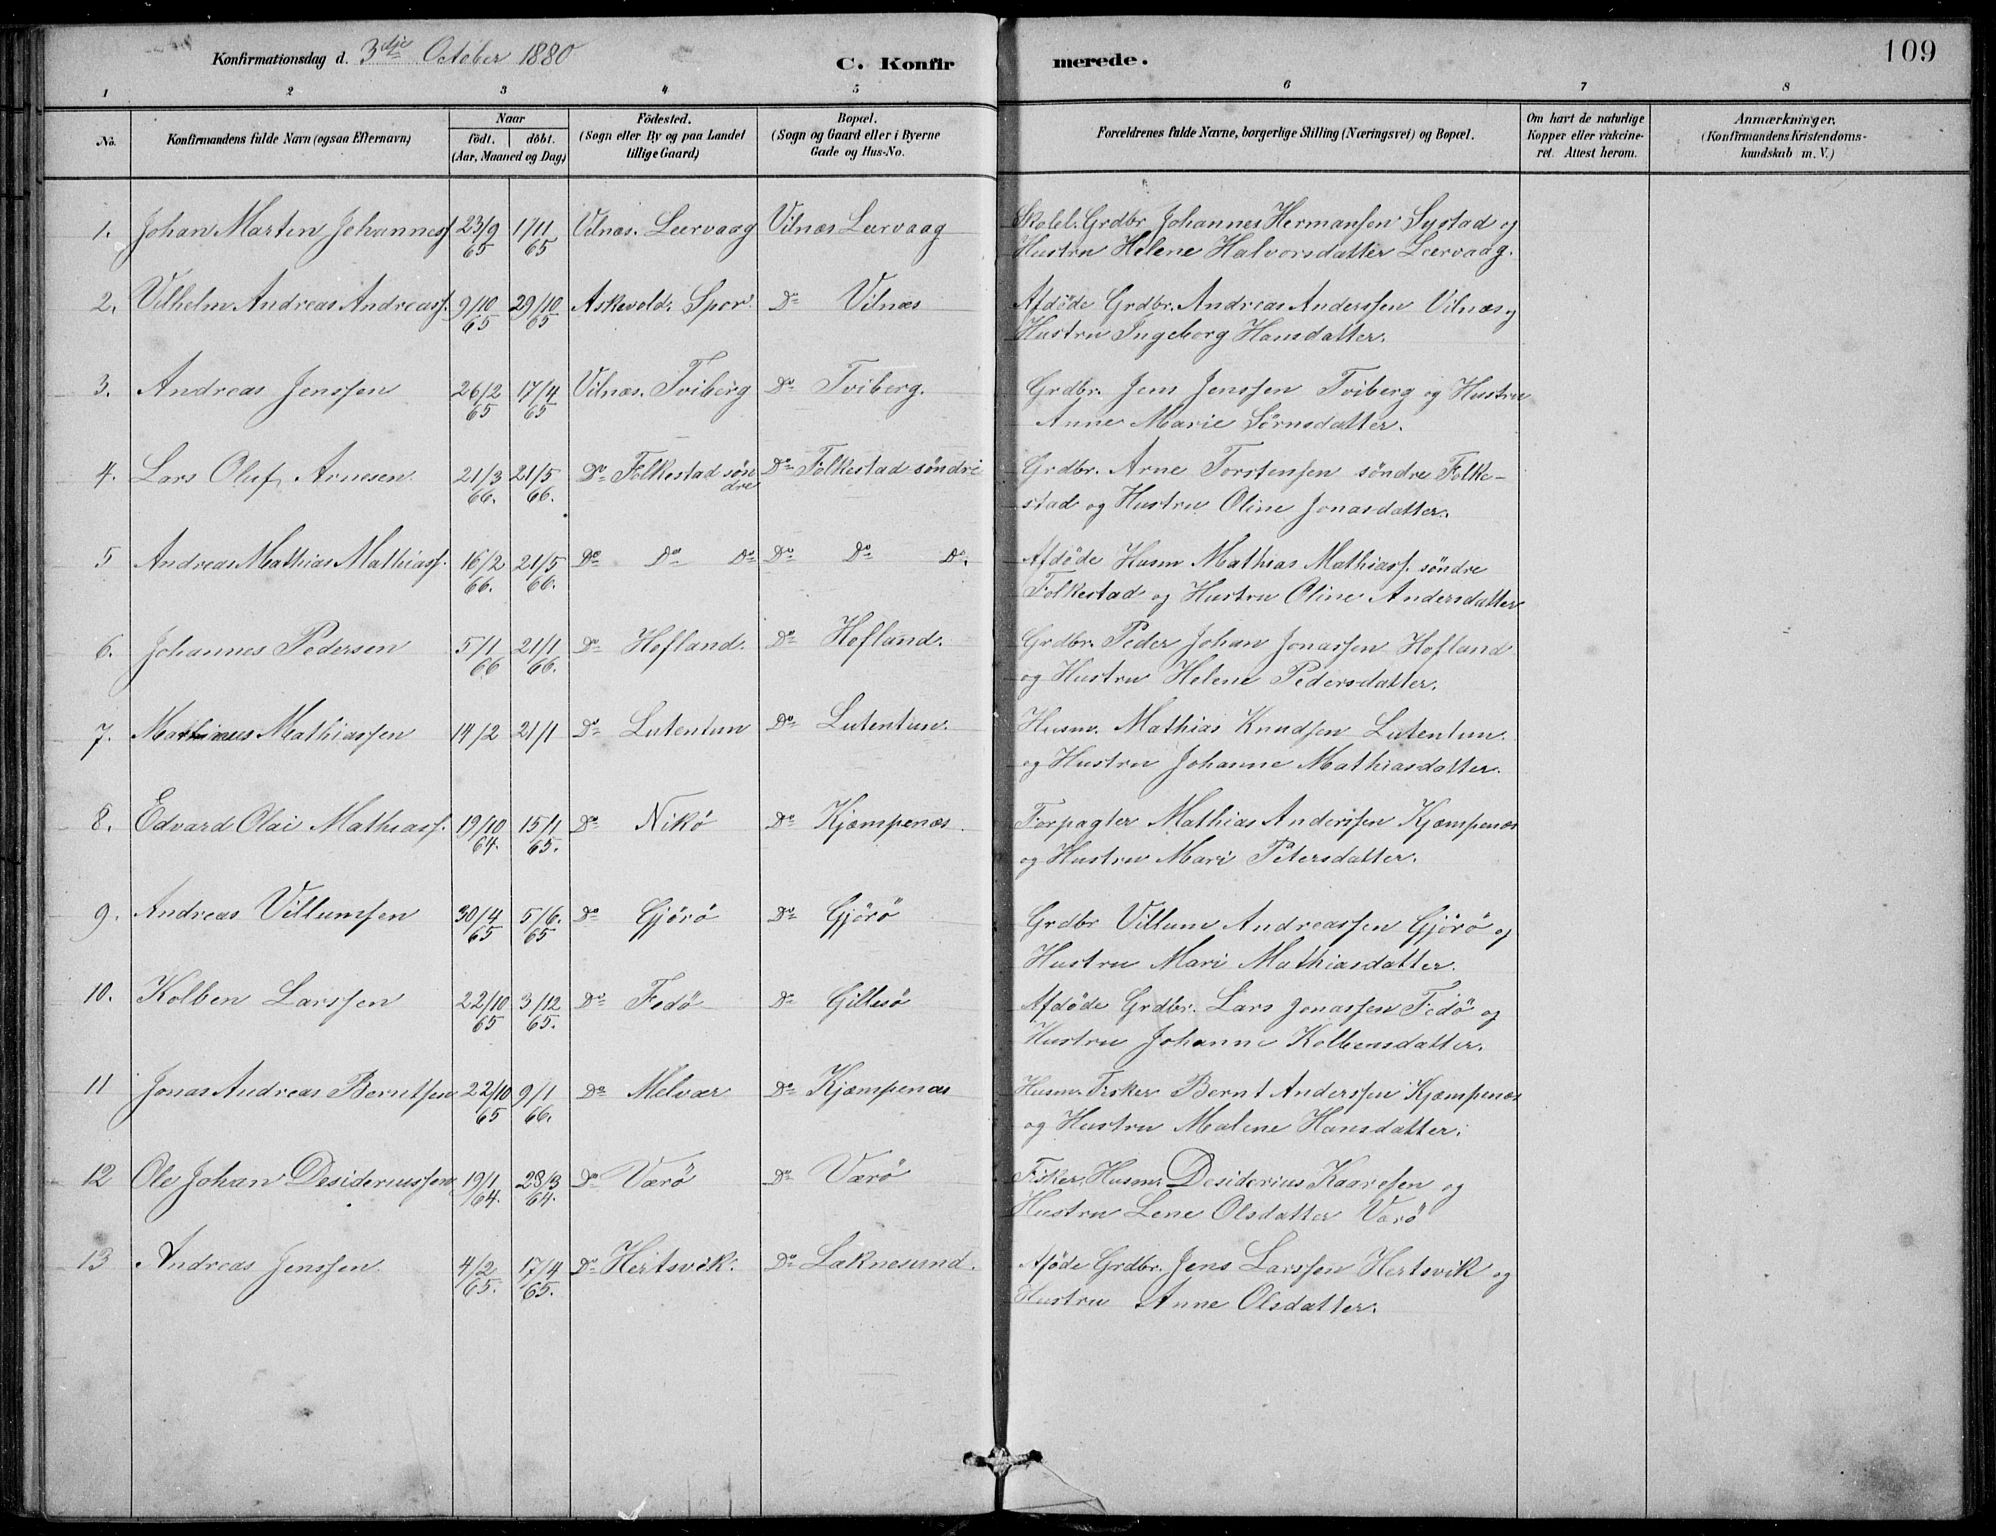 Konfirmationsdag d. 3die October 1880 C. Konfirmerede. 109
1 2 3 4 5 6 7 8
No. Konfirmandens fulde Navn (ogsaa Efternavn) Naar født. døbt. (Aar, Maaned og Dag) Födested. (Sogn eller By og paa Landet tillige Gaard) Bopæl. (Sogn og Gaard eller i Byerne Gade og Hus-No. Forældrenes fulde Navne, borgerlige Stilling (Næringsvei) og Bopæl. Om havt de naturlige Kopper eller vakcineret. Attest herom. Anmærkninger. (Konfirmandens Kristendomskundskab m. V.)
1. Johan Martin Johannesf. 23/9 65 1/11 65 Vilnæs. Leervaag Vilnæs Leervaag Skolel. Grdbr. Johannes Hermansen Systad og
Hustru Helene Halvorsdatter Leervaag.
2. Vilhelm Andreas Andreasf. 9/10 65 29/10 65 Askevold. Spor. Do Vilnæs Afdøde Grdbr. Andreas Anderssen Vilnæs og
Hustru Ingeborg Hansdatter.
3. Andreas Jenssen 26/2 65 17/4 65 Vilnæs. Tviberg Do Tviberg. Grdbr. Jens Jenssen Tviberg og Hustru
Anne Marie Sörnsdatter.
4. Lars Oluf Arnesen. 21/3 66. 21/5 66. Do Folkestad söndre Do Folkestad söndre Grdbr. Arne Torstensen söndre Folke-
stad og Hustru Oline Jonasdatter.
5 Andreas Mathias Mathiasf. 16/2 66. 21/5 66. Do Do Do Do Do Do. Afdøde Husm Mathias Mathiasf. söndre
Folkestad og Hustru Oline Andersdatter
6. Johannes Pedersen 5/1 66 21/1 66. Do Hofland. Do Hofland. Grdbr. Peder Johan Jonassen Hofland
og Hustru Helene Pedersdatter.
7. Mathias Mathiassen 14/2 21/1 Do Lutentun Do Lutentun. Husm. Mathias Knudsen Lutentun.
og Hustru Johanne Mathiasdatter.
8. Edvard Olai Mathiasf. 19/10 64. 15/1 65. Do Nikö Do Kjæmpenæs. Forpagter Mathias Anderssen Kjæmpenæs
og Hustru Mari Petersdatter.
9. Andreas Villumssen 30/4 65 5/6. 65 Do Gjörö Do Gjörö Grdbr Villum Andreassen Gjörö og
Hustru Mari Mathiasdatter.
10. Kolben Larssen 22/10 65 3/12 65. Do Fedö Do Gillesö Afdøde Grdbr. Lars Jonassen Fedö og
Hustru Johanne Kolbensdatter.
11 Jonas Andreas Berntsen 22/10 65 9/1 66. Do Melvær Do Kjæmpenæs Husm. Fisker Bernt Anderssen Kjæmpenæs
og Hustru Malene Hansdatter.
12 Ole Johan Desideriussen 19/1 64. 28/3 64. Do Værö Do Værö Fisker. Husm. Desiderius Kaaresen og
Hustru Lene Olsdatter Værö
13 Andreas Jenssen. 4/2 65. 17/4 65. Do Hertsvik. Do Laknesund. Afdøde Grdbr. Jens Larssen Hertsvik og
Hustru Anne Olsdatter.